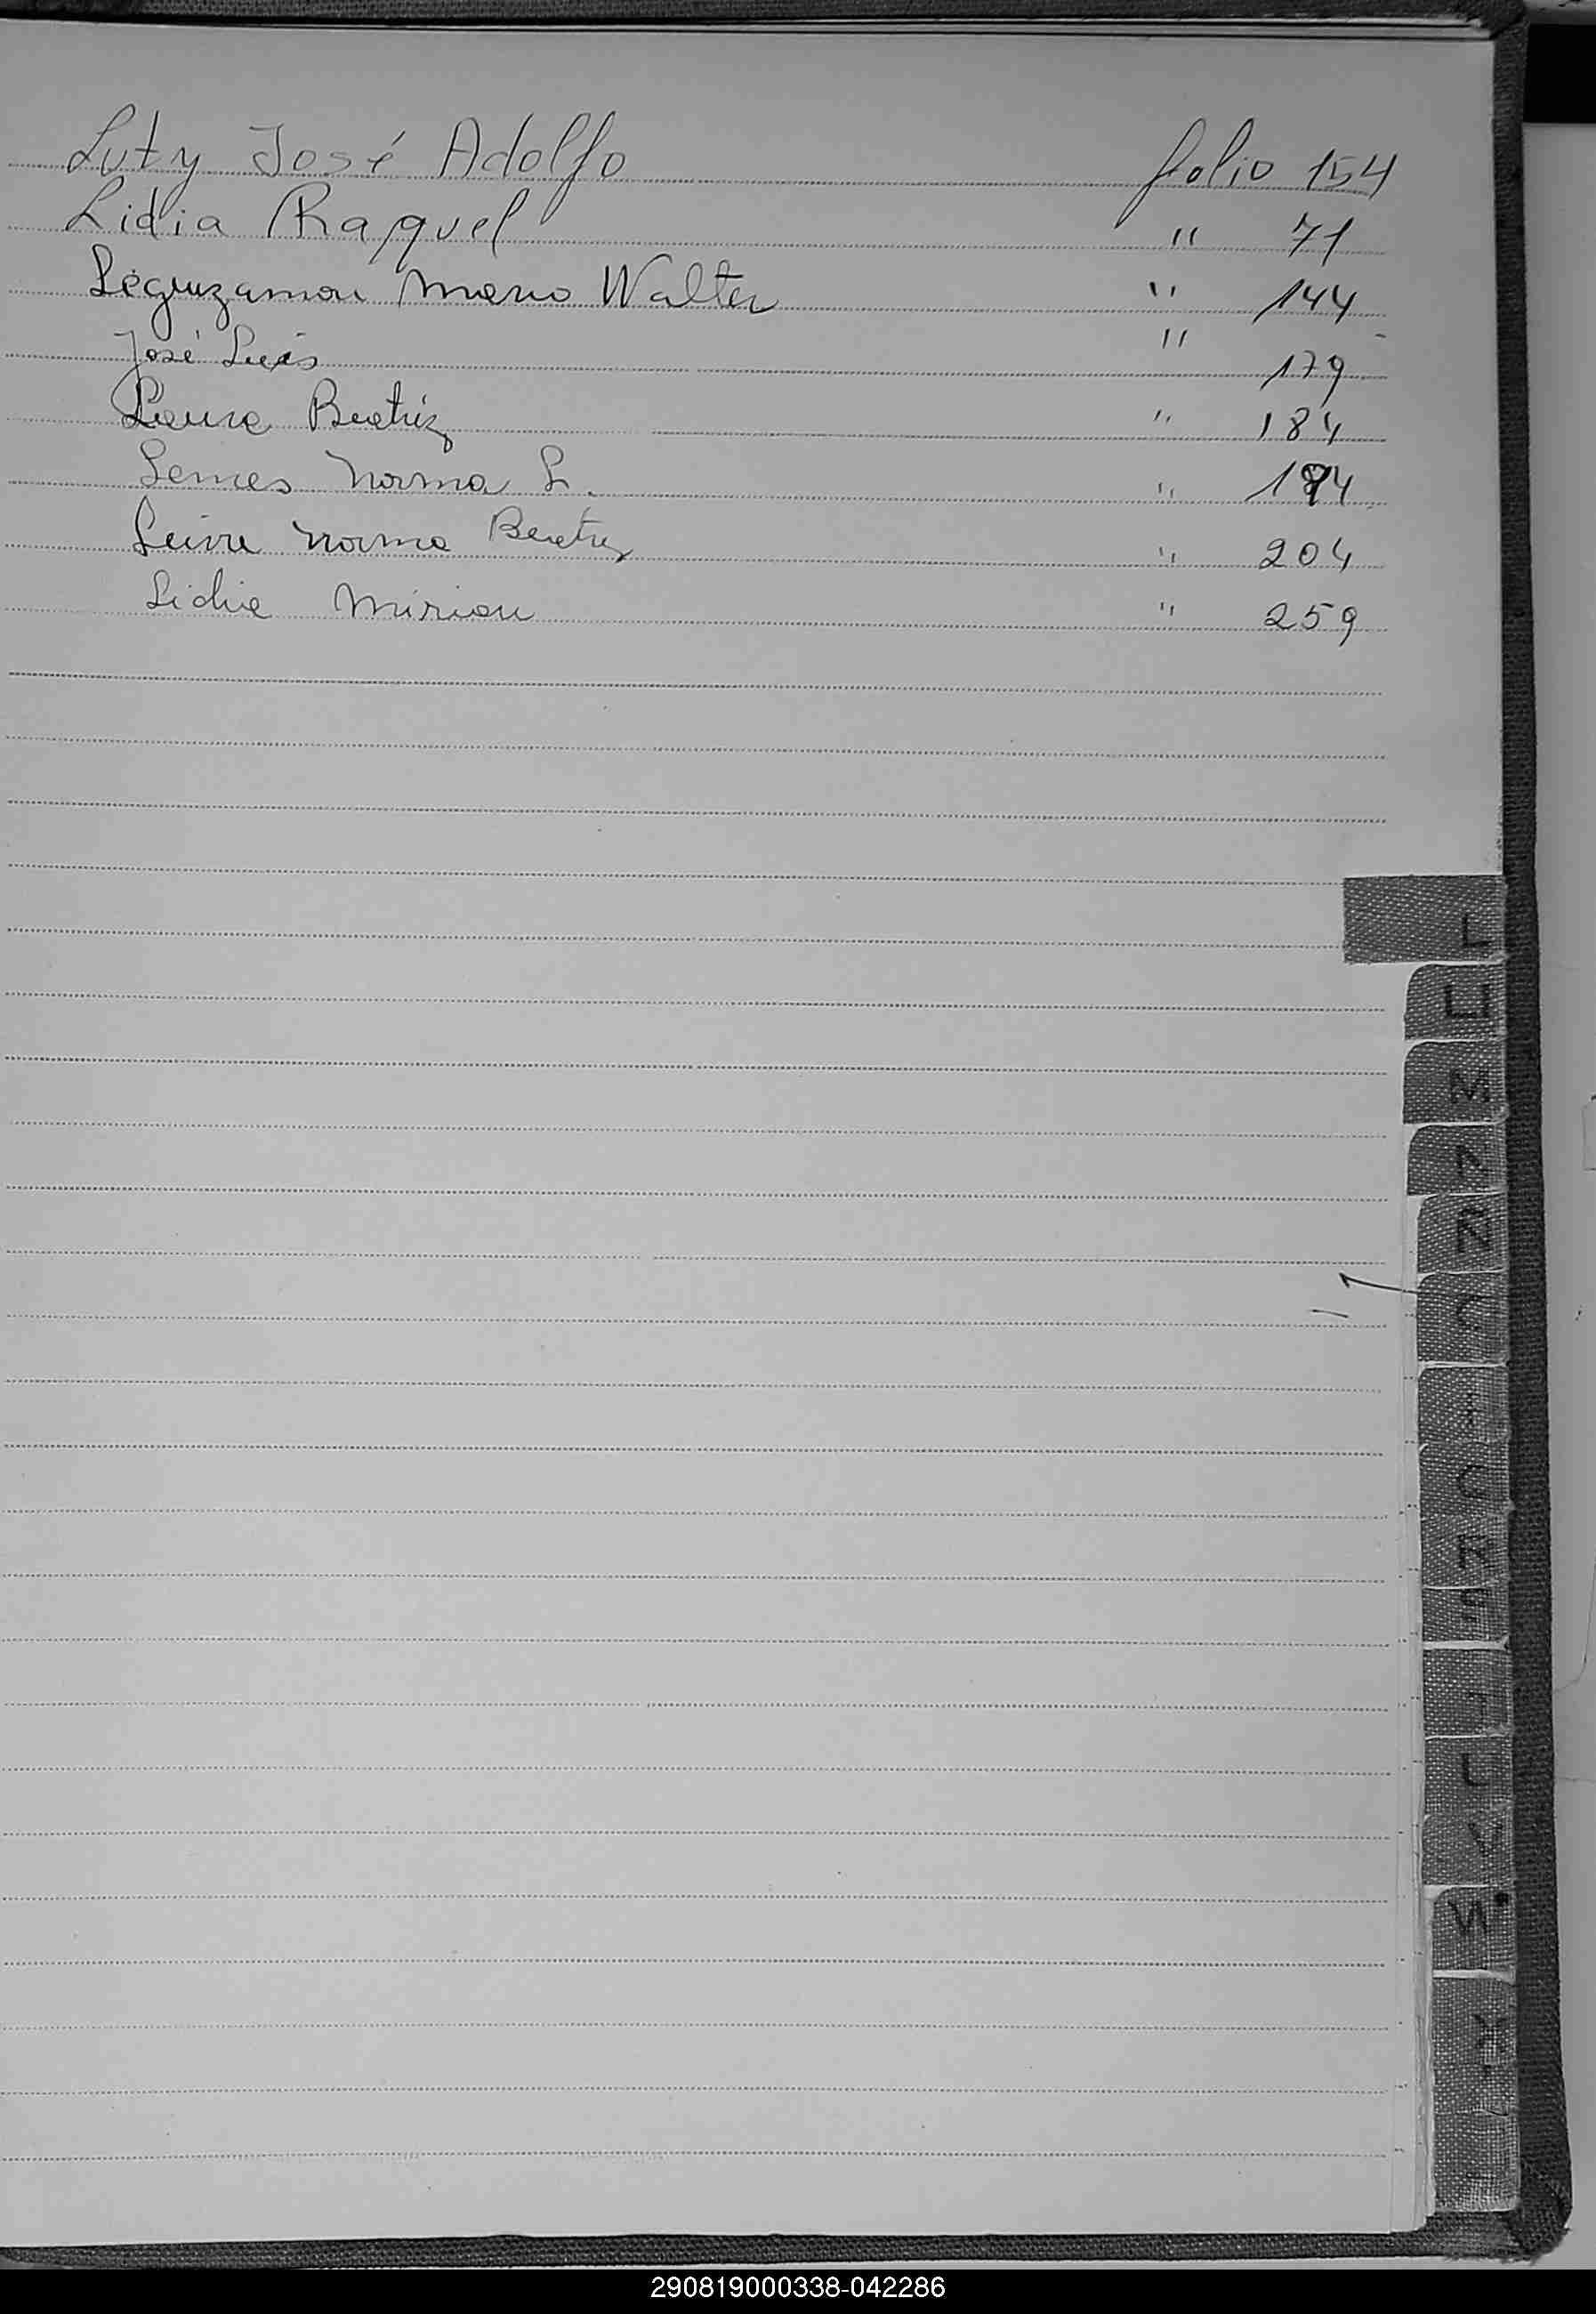 Luty José Adolfo folio 154
Lidia Raquel " 71
Leguizamon Mario Walter " 144
José Luis " 179
Laura Beatriz " 184
Lemes Norma L. " 194
Leiva Norma Beatriz " 204
Lidia Mirian " 259
L
LL
M
N
Ñ
R
S
U
V
W
X
290819000338-042286